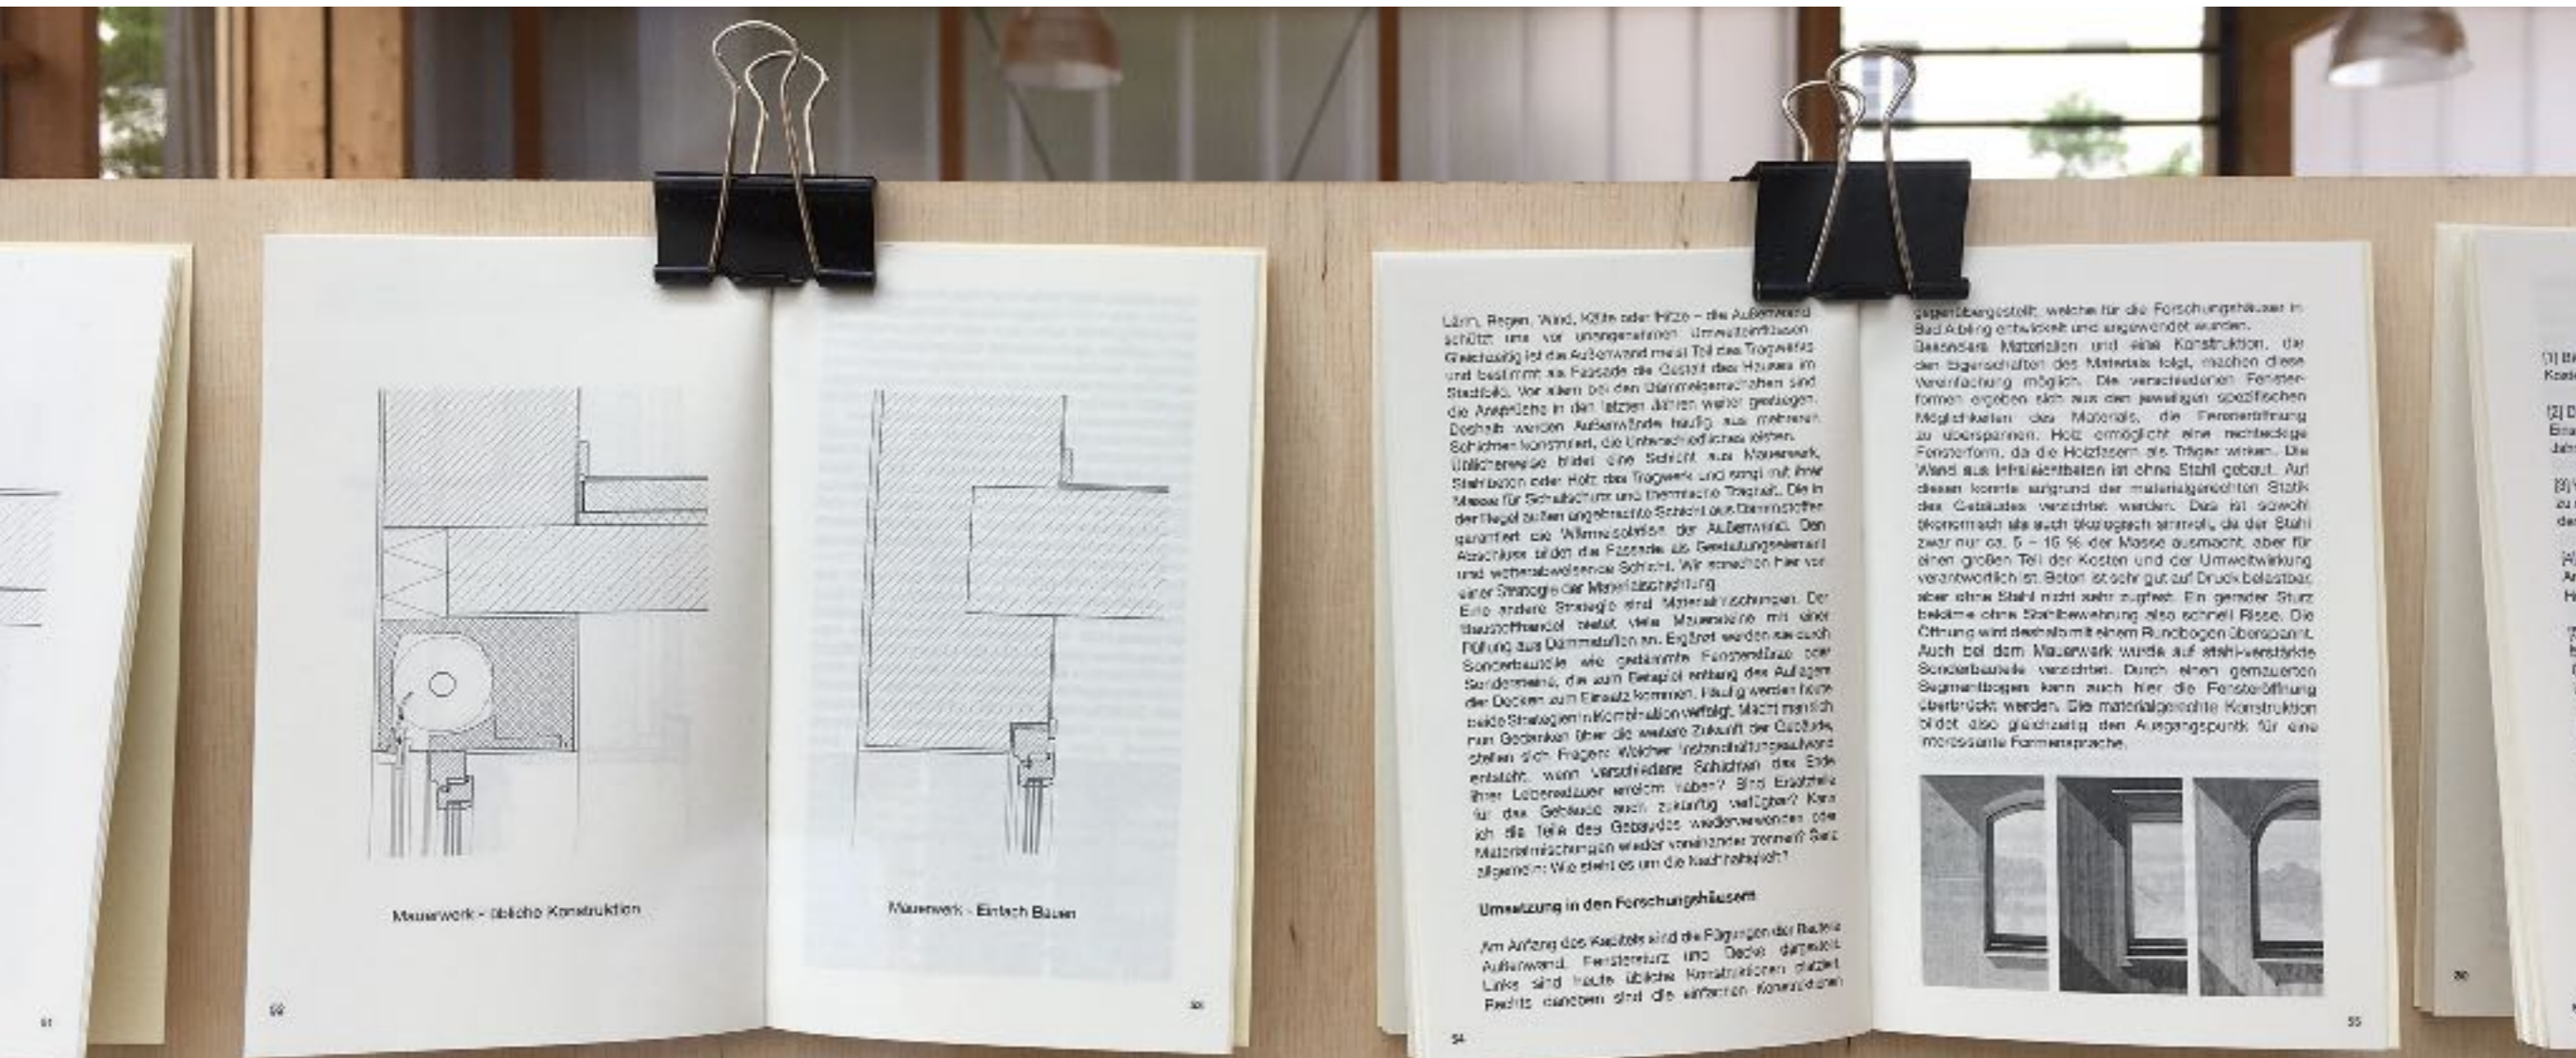 51
Mauerwerk - übliche Konstruktion
52
Mauerwerk - Einfach Bauen
53
Lärm, Regen, Wind, Kälte oder Hitze – die Außenwand
schützt uns vor unangenehmen Umwelteinflüssen.
Gleichzeitig ist die Außenwand meist Teil des Tragwerks
und bestimmt als Fassade die Gestalt des Hauses im
Stadtbild. Vor allem bei den Dämmeigenschaften sind
die Ansprüche in den letzten Jahren weiter gestiegen.
Deshalb werden Außenwände häufig aus mehreren
Schichten konstruiert, die Unterschiedliches leisten.
Üblicherweise bildet eine Schicht aus Mauerwerk,
Stahlbeton oder Holz das Tragwerk und sorgt mit ihrer
Masse für Schallschutz und thermische Trägheit. Die in
der Regel außen angebrachte Schicht aus Dämmstoffen
garantiert die Wärmeisolation der Außenwand. Den
Abschluss bildet die Fassade als Gestaltungselement
und wetterabweisende Schicht. Wir sprechen hier von
einer Strategie der Materialschichtung.
Eine andere Strategie sind Materialmischungen. Der
Baustoffhandel bietet viele Mauersteine mit einer
Füllung aus Dämmstoffen an. Ergänzt werden sie durch
Sonderbauteile wie gedämmte Fensterstürze oder
Sondersteine, die zum Beispiel entlang des Auflagers
der Decken zum Einsatz kommen. Häufig werden heute
beide Strategien in Kombination verfolgt. Macht man sich
nun Gedanken über die weitere Zukunft der Gebäude,
stellen sich Fragen: Welcher Instandhaltungsaufwand
entsteht, wenn verschiedene Schichten das Ende
ihrer Lebensdauer erreicht haben? Sind Ersatzteile
für das Gebäude auch zukünftig verfügbar? Kann
ich die Teile des Gebäudes wiederverwenden oder
Materialmischungen wieder voneinander trennen? Ganz
allgemein: Wie steht es um die Nachhaltigkeit?
Umsetzung in den Forschungshäusern
Am Anfang des Kapitels sind die Fügungen der Bauteile
Außenwand, Fenstersturz und Decke dargestellt.
Links sind heute übliche Konstruktionen platziert.
Rechts daneben sind die einfachen Konstruktionen
54
gegenübergestellt, welche für die Forschungshäuser in
Bad Aibling entwickelt und angewendet wurden.
Besondere Materialien und eine Konstruktion, die
den Eigenschaften des Materials folgt, machen diese
Vereinfachung möglich. Die verschiedenen Fenster-
formen ergeben sich aus den jeweiligen spezifischen
Möglichkeiten des Materials, die Fensteröffnung
zu überspannen. Holz ermöglicht eine rechteckige
Fensterform, da die Holzfasern als Träger wirken. Die
Wand aus Infraleichtbeton ist ohne Stahl gebaut. Auf
diesen konnte aufgrund der materialgerechten Statik
des Gebäudes verzichtet werden. Das ist sowohl
ökonomisch als auch ökologisch sinnvoll, da der Stahl
zwar nur ca. 5 – 15 % der Masse ausmacht, aber für
einen großen Teil der Kosten und der Umweltwirkung
verantwortlich ist. Beton ist sehr gut auf Druck belastbar,
aber ohne Stahl nicht sehr zugfest. Ein gerader Sturz
bekäme ohne Stahlbewehrung also schnell Risse. Die
Öffnung wird deshalb mit einem Rundbogen überspannt.
Auch bei dem Mauerwerk wurde auf stahl-verstärkte
Sonderbauteile verzichtet. Durch einen gemauerten
Segmentbogen kann auch hier die Fensteröffnung
überbrückt werden. Die materialgerechte Konstruktion
bildet also gleichzeitig den Ausgangspuntk für eine
interessante Formensprache.
55
[1]
[2]
[3]